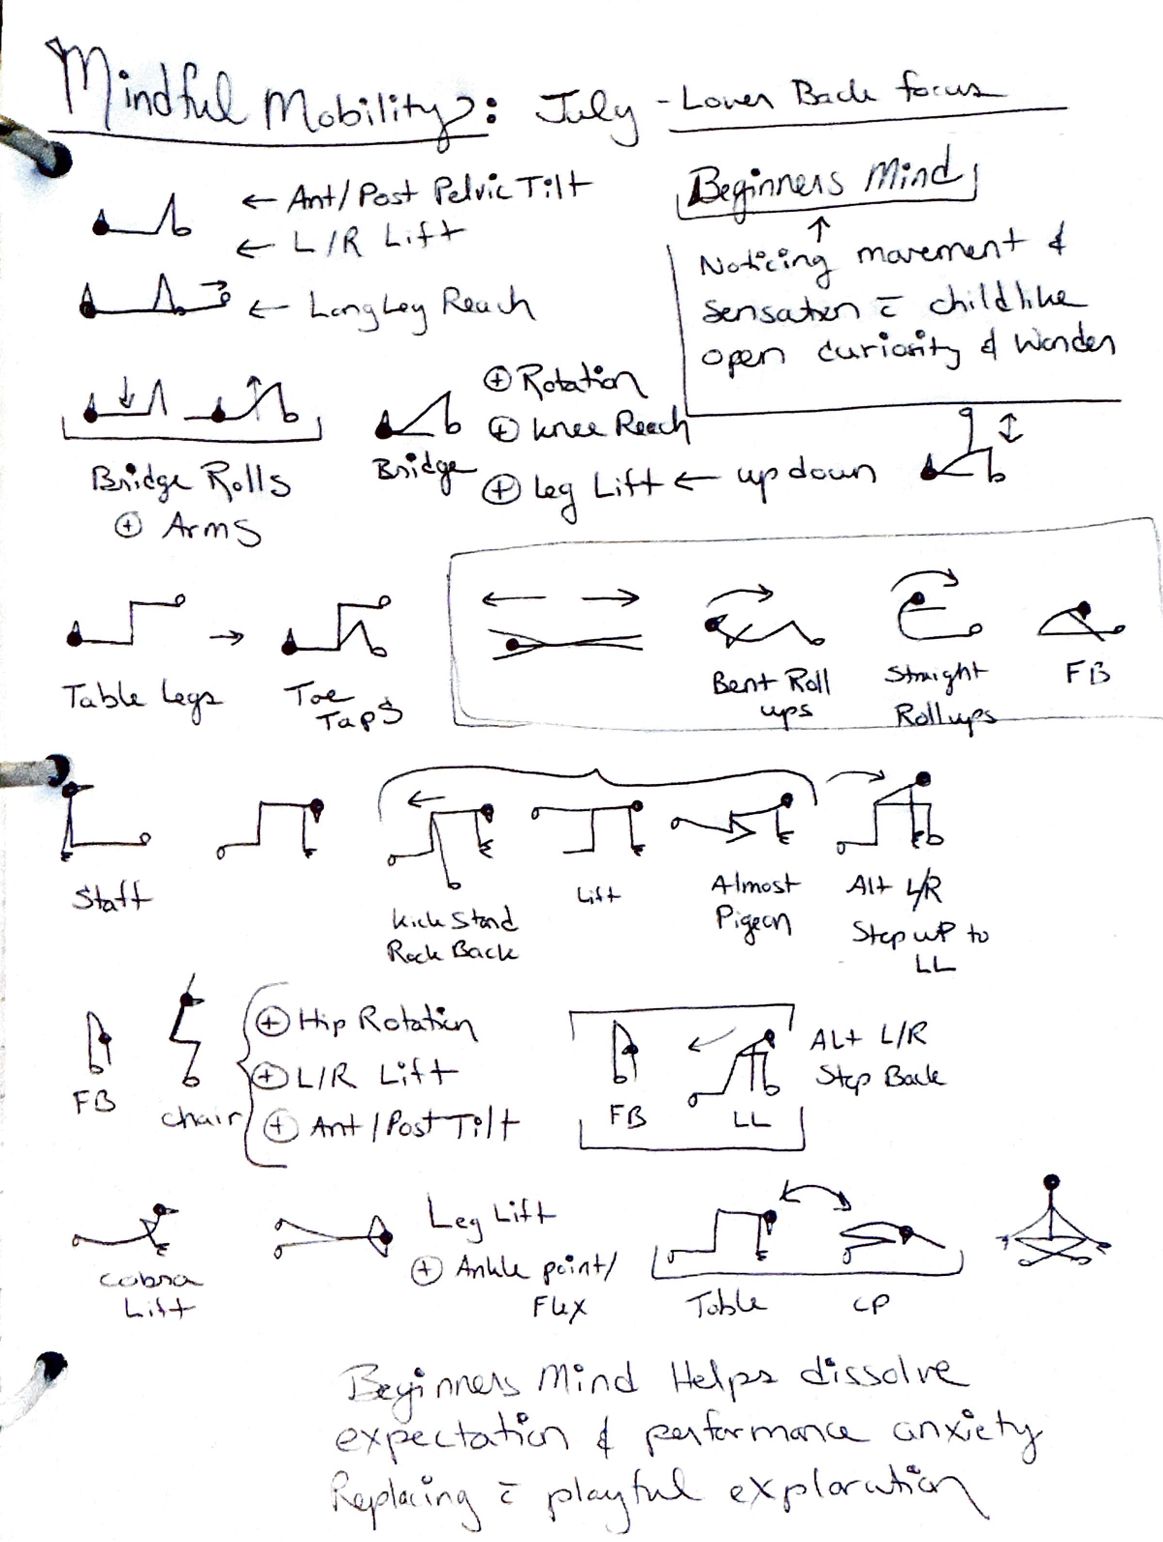 Mindful Mobility: July - Lower Back focus
← Ant/Post Pelvic Tilt
← L/R Lift
← Long Leg Reach
Beginners Mind
↑
Noticing movement &
sensation c̄ childlike
open curiosity & Wonder
Bridge Rolls
⊕ Arms
Bridge
⊕ Rotation
⊕ Knee Reach
⊕ Leg Lift ← up down
Table Legs
→
Toe
Taps
Bent Roll
ups
Straight
Roll ups
FB
Staff
Kick Stand
Rock Back
Lift
Almost
Pigeon
Alt L/R
Step up to
LL
FB
Chair
⊕ Hip Rotation
⊕ L/R Lift
⊕ Ant/Post Tilt
FB
LL
ALt L/R
Step Back
Cobra
Lift
Leg Lift
⊕ Ankle point/
Flex
Table
CP
Beginners Mind Helps dissolve
expectation & performance anxiety
Replacing c̄ playful exploration